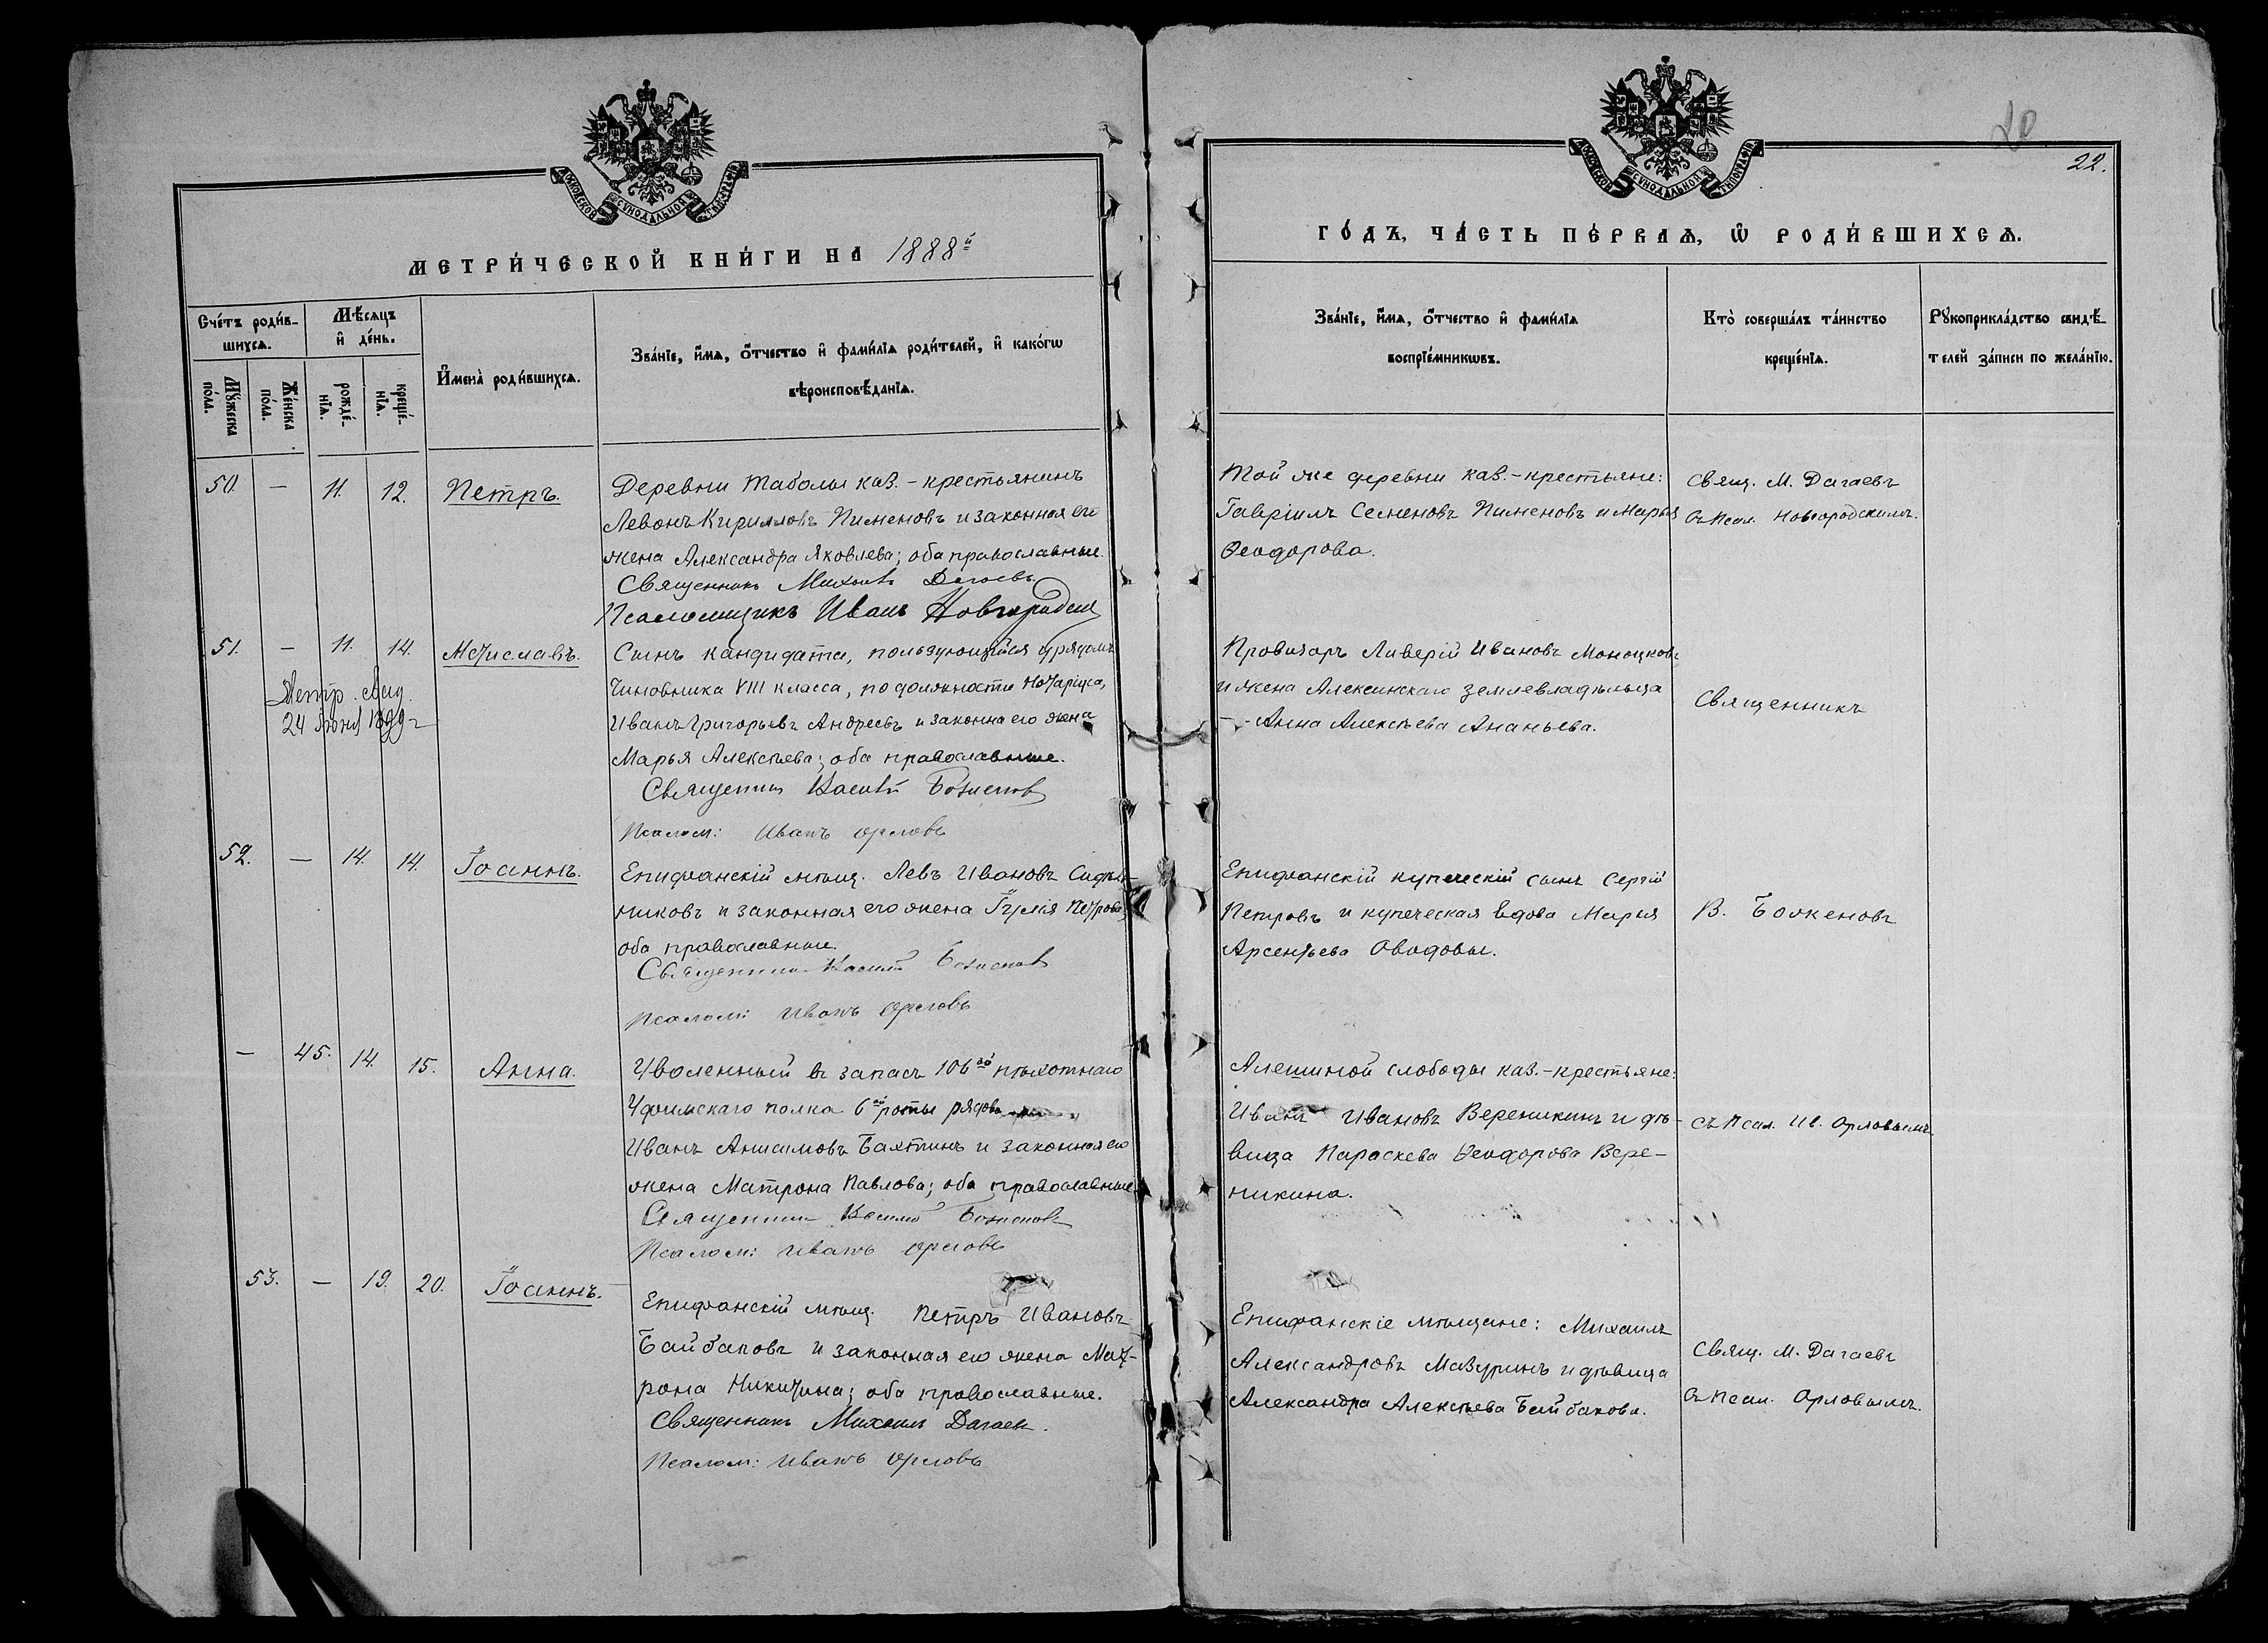 МОСКОВСКОЙ СѴНОДАЛЬНОЙ ТИПОГРАФІИ
МЕТРИ́ЧЕСКОЙ КНИ́ГИ НА 1888й
Сче́тъ роди́в-
шихсѧ.
Мѣ́сѧцъ
и҆ де́нь.
И҆мена̀ роди́вшихсѧ.
Зва́нїе, и҆́мѧ, ѻ҆́тчество и҆ фами́лїѧ роди́телей, и҆ како́гѡ
вѣроисповѣ́данїѧ.
Мꙋ́жеска
по́ла.
Же́нска
по́ла.
рожде́-
нїѧ.
креще́-
нїѧ.
50. — 11. 12. Петръ.
Деревни Таболы каз.-крестьянинъ
Левонъ Кирилловъ Пименовъ и законная его
жена Александра Яковлева; оба православные.
Священникъ Михаилъ Дагаевъ
Псаломщикъ Иванъ Новгородскій
51. — 11. 14. Мстиславъ.
24 Іюня 1899 г
Сынъ кандидата, пользующійся урядомъ
Чиновника VIII класса, по должности Нотаріуса,
Иванъ Григорьевъ Андреевъ и законна его жена
Марья Алексѣева; оба православные.
Священникъ Василій Боженовъ
Псалом: Иванъ Орловъ
52. — 14. 14. Іоаннъ.
Епифанскій мѣщ. Левъ Ивановъ Сидѣль-
никовъ и законная его жена Іулія Петрова;
оба православные.
Священникъ Василій Боженовъ
Псалом: Иванъ Орловъ
— 45. 14. 15. Анна.
Уволенный въ запасъ 106го пѣхотнаго
Уфимскаго полка 6ой роты рядова
Иванъ Анисимовъ Бахтинъ и законная его
жена Матрона Павлова; оба православные
Священникъ Василій Боженовъ
Псалом: Иванъ Орловъ
53. — 19. 20. Іоаннъ.
Епифанскій мѣщ. Петръ Ивановъ
Байбаковъ и законная его жена Мат-
рона Никитина; оба православные.
Священникъ Михаилъ Дагаевъ.
Псалом: Иванъ Орловъ
МОСКОВСКОЙ СѴНОДАЛЬНОЙ ТИПОГРАФІИ
22.
ГО́ДЪ, ЧА́СТЬ ПЕ́РВАѦ, Ѡ҆ РОДИ́ВШИХСѦ.
Зва́нїе, и҆́мѧ, ѻ҆́тчество и҆ фами́лїѧ
воспрїе́мникѡвъ.
Кто̀ соверша́лъ та́инство
креще́нїѧ.
Рꙋкоприкла́дство свидѣ́-
телей за́писи по жела́нїю.
Той же деревни каз.-крестьяне:
Гавріилъ Семеновъ Пименовъ и Марья
Ѳеодорова.
Свящ. М. Дагаевъ
съ Псал. Новгородскимъ.
Провизоръ Ливерій Ивановъ Моноцковъ
и жена Алексинскаго землевладѣльца
- Анна Алексѣева Ананьева.
Священникъ
Епифанскій купеческій сынъ Сергій
Петровъ и купеческая вдова Марія
Арсентьева Оводовы.
В. Боженовъ
Алешиной слободы каз.-крестьяне:
Иванъ Ивановъ Вереникинъ и дѣ-
вица Параскева Ѳеодорова Вере-
никина.
съ Псал. Ив. Орловымъ.
Епифанскіе мѣщане: Михаилъ
Александровъ Мазуринъ и дѣвица
Александра Алексѣева Байбакова.
Свящ. М. Дагаевъ
съ Псал. Орловымъ.